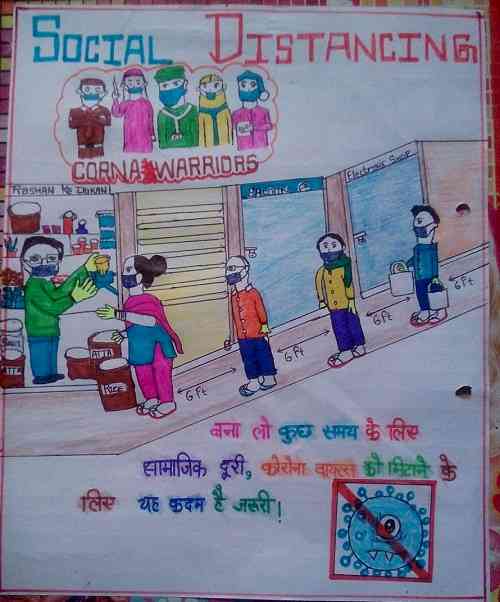 SOCIAL DISTANCING
CORNA WARRIORS
RASHAN KI DUKAN
Electronic Shop
ATTA
ATTA
RICE
6 Ft
6 Ft
6 Ft
6 Ft
बना लो कुछ समय के लिए
सामाजिक दूरी, कोरोना वायरस को मिटाने के
लिए यह कदम है जरूरी!